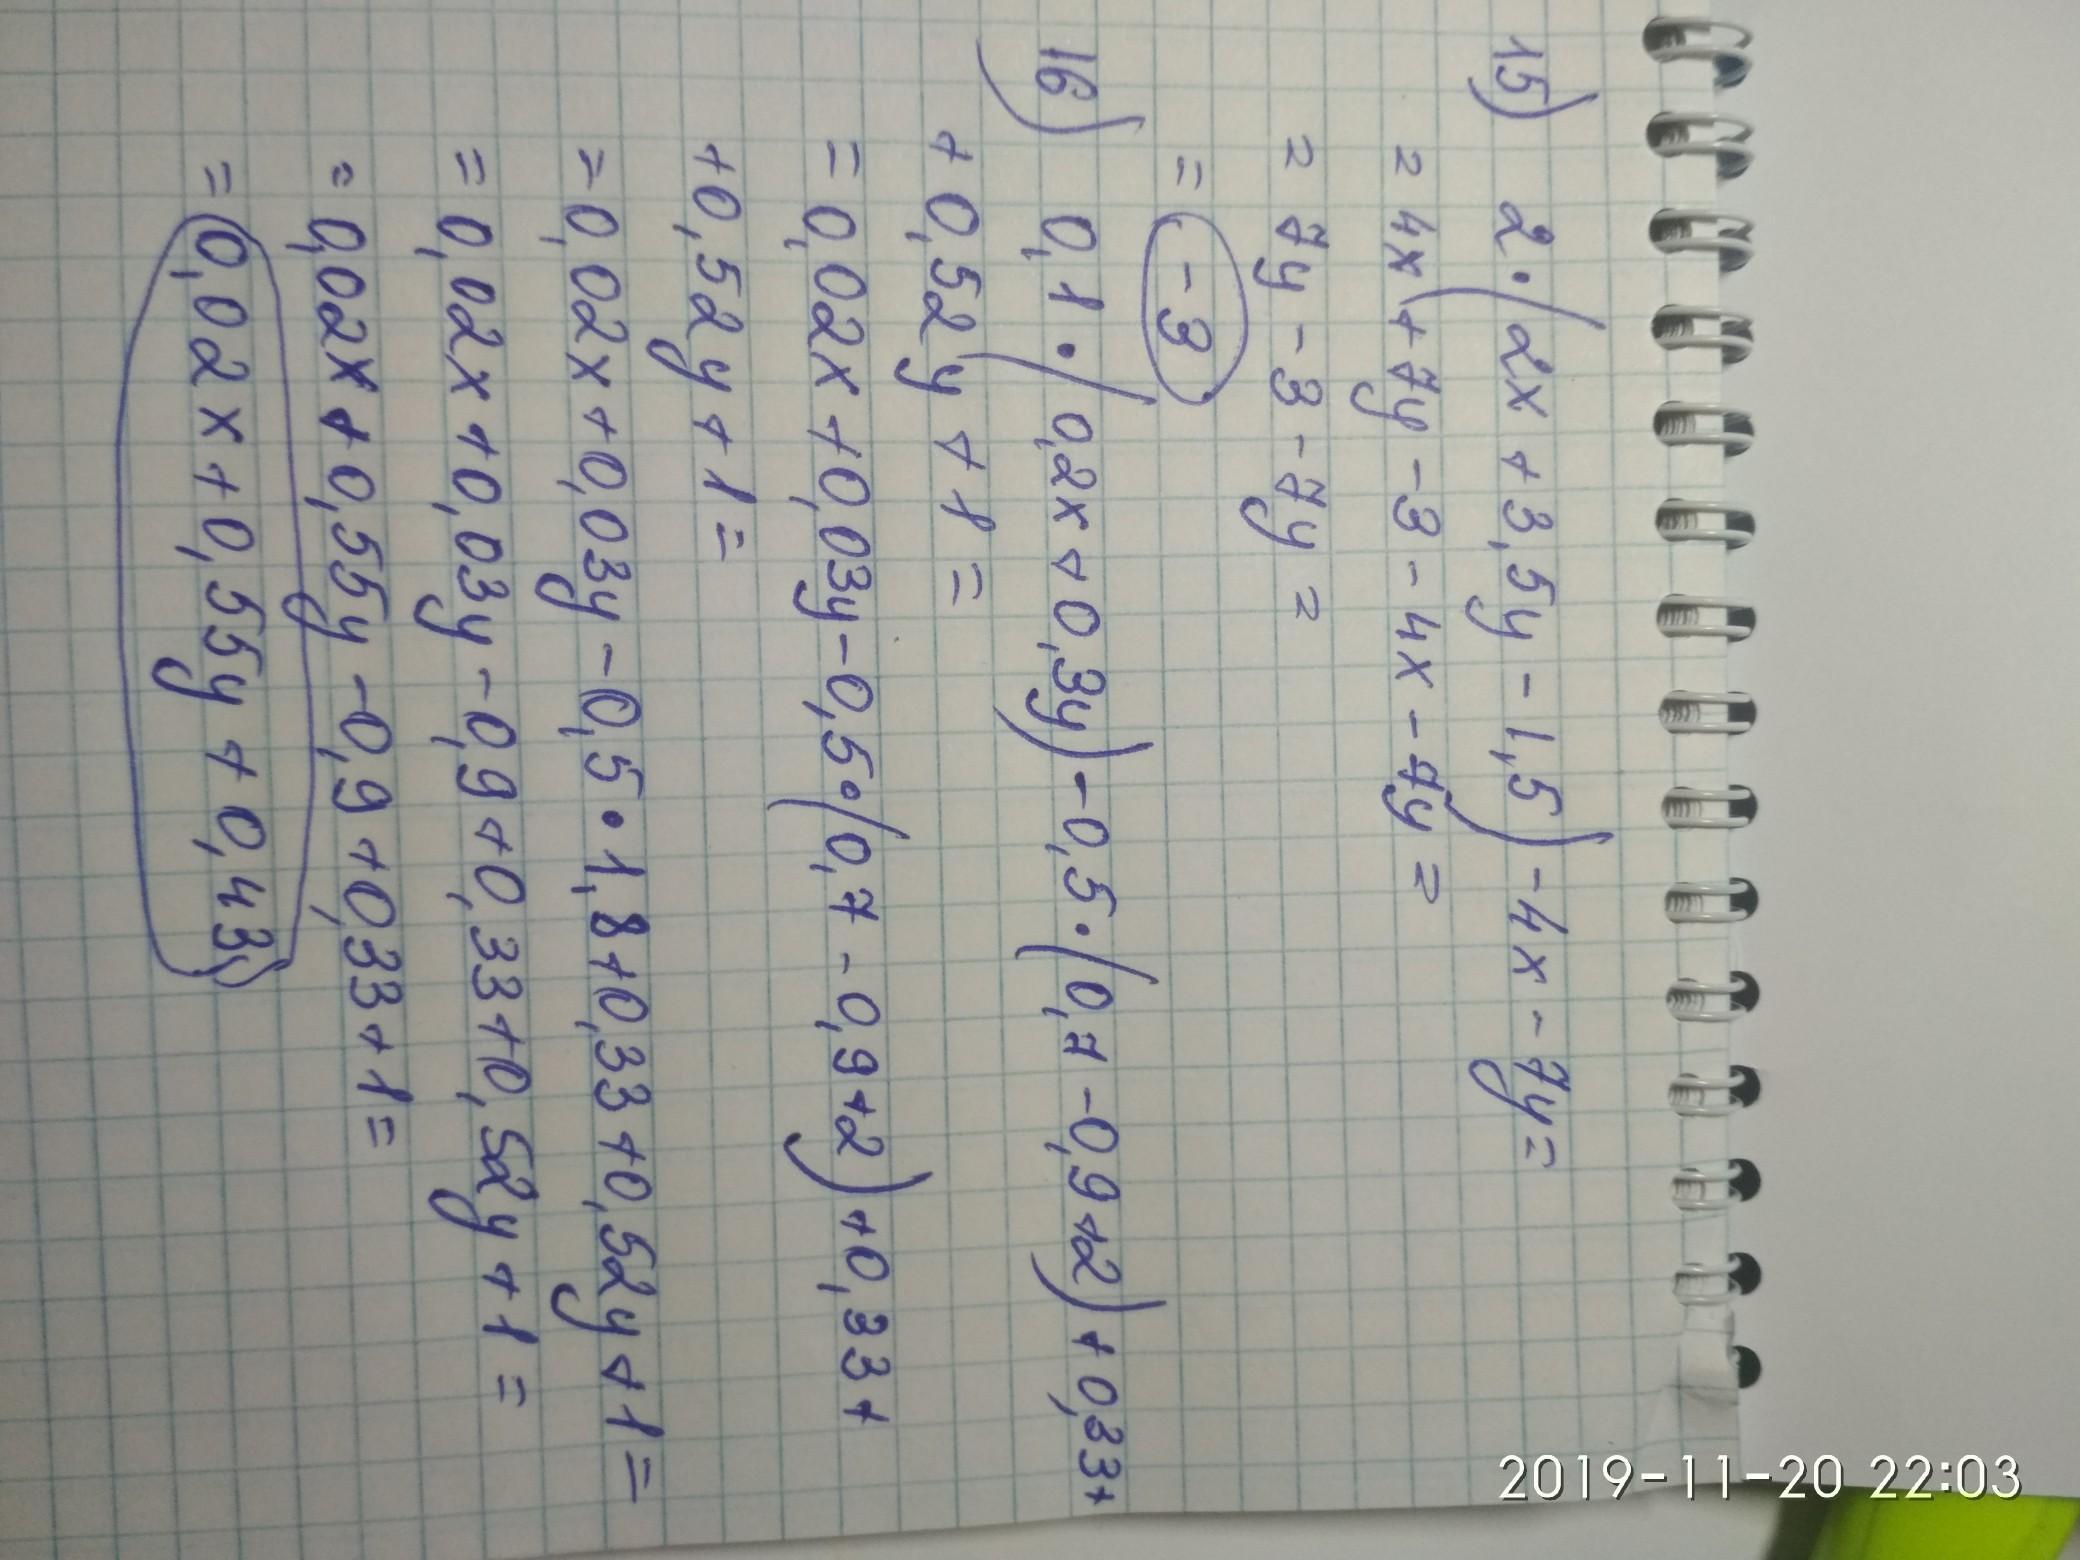 15) 2·(2x+3,5y-1,5)-4x-7y=
= 4x+7y-3-4x-7y=
= 7y-3-7y=
= -3
16) 0,1·(0,2x+0,3y)-0,5·(0,7-0,9+2)+0,33+
+0,52y+1=
=0,02x+0,03y-0,5·(0,7-0,9+2)+0,33+
+0,52y+1=
=0,02x+0,03y-0,5·1,8+0,33+0,52y+1=
=0,02x+0,03y-0,9+0,33+0,52y+1=
=0,02x+0,55y-0,9+0,33+1=
=0,02x+0,55y+0,43)
2019-11-20 22:03